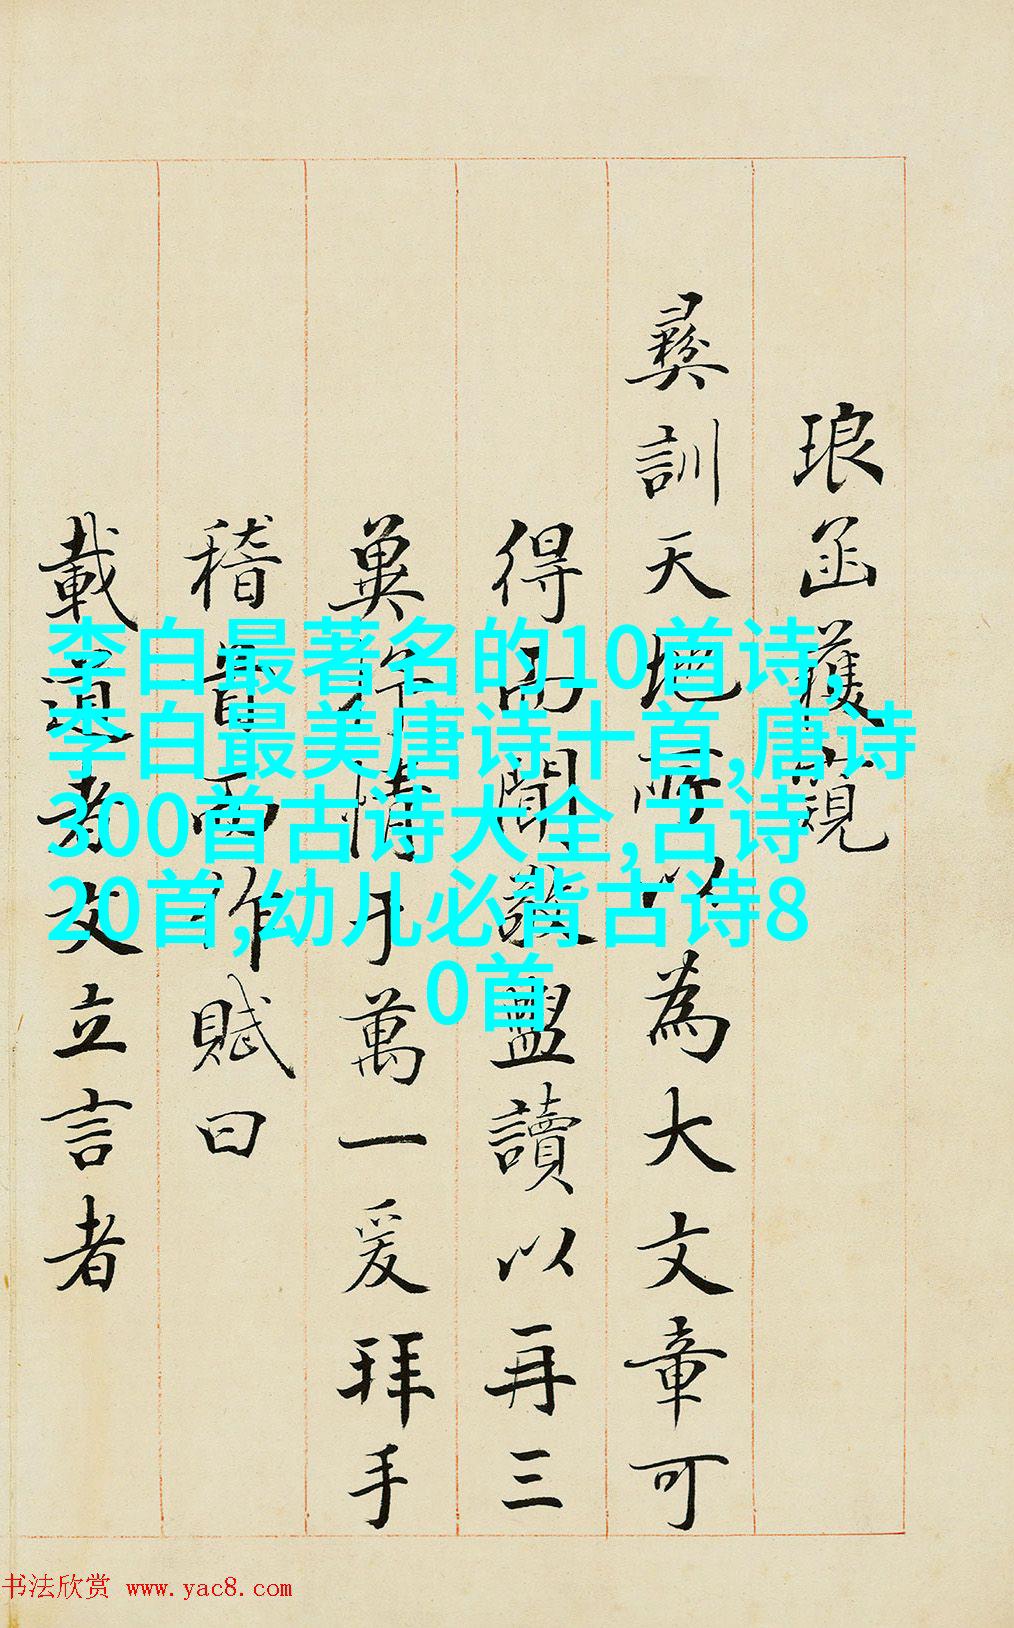 琅函獲窺
彝訓天地所以為大文章可
得而聞敬盥讀以再三
冀情于萬一爰拜手
稽首而作賦曰
載道者文立言者
李白最著名的10首诗,
李白最美唐诗十首,唐诗
300首古诗大全,古诗
20首,幼儿必背古诗8
0首
书法欣赏 www.yac8.com